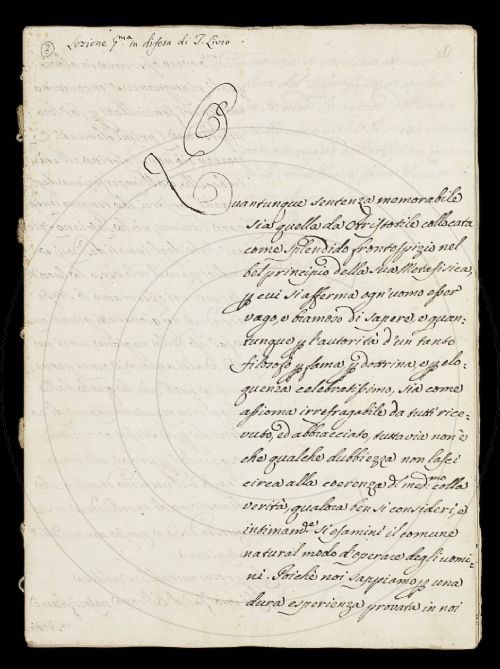 7 Lezione p.ma in difesa di T. Livio. 1
Quantunque sentenza memorabile
sia quella da Aristotile collocata
come splendido frontespizio nel
bel principio della sua Metafisica,
p cui si afferma ogn'uomo esser
vago, e bramoso di sapere, e quan:
tunque p l'autorità d'un tanto
filosofo p fama p dottrina, e p elo:
quenza celebratissimo, sia come
assioma irrefragabile da tutti rice:
vuto, ed abbracciato, tuttavia non è
che qualche dubbiezza non lasci
circa alla coerenza d med.mo colla
verità, qualora ben si consideri, e
intimam.te si esamini il comune
natural modo d'operare degli uomi:
ni. Poichè noi sappiamo p una
dura esperienza provata in noi